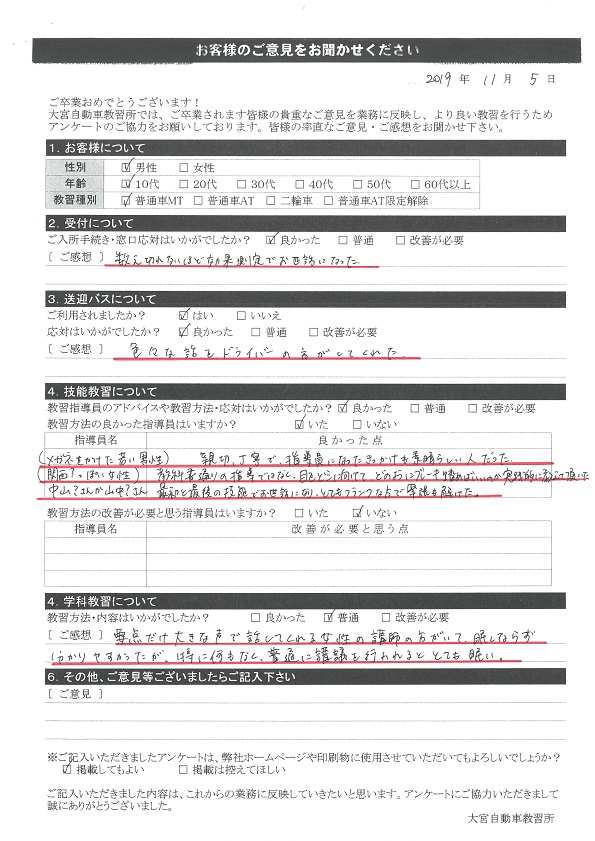 お客様のご意見をお聞かせください
2019 年 11 月 5 日
ご卒業おめでとうございます！
大宮自動車教習所では、ご卒業されます皆様の貴重なご意見を業務に反映し、より良い教習を行うため
アンケートのご協力をお願いしております。皆様の率直なご意見・ご感想をお聞かせ下さい。
1. お客様について
性別 ☑男性 □女性
年齢 ☑10代 □20代 □30代 □40代 □50代 □60代以上
教習種別 ☑普通車MT □普通車AT □二輪車 □普通車AT限定解除
2. 受付について
ご入所手続き・窓口応対はいかがでしたか？ ☑良かった □普通 □改善が必要
［ ご感想 ］ 数え切れないほど効果測定でお世話になった
3. 送迎バスについて
ご利用されましたか？ ☑はい □いいえ
応対はいかがでしたか？ ☑良かった □普通 □改善が必要
［ ご感想 ］ 色々な話をドライバーの方がしてくれた。
4. 技能教習について
教習指導員のアドバイスや教習方法・応対はいかがでしたか？ ☑良かった □普通 □改善が必要
教習方法の良かった指導員はいますか？ ☑いた □いない
指導員名 良かった点
(メガネをかけた若い男性) 親切、丁寧で、指導員になったきっかけも素晴らしい人だった
(関西?っぽい女性) 教科書通りの指導ではなく、目をどこに向けて どのように ブレーキ踏めばいいのか実践的に 頂いた
中山?さんか山中?さん 最初と最後の技能でお世話になり、とてもフランクな方で緊張も解けた。
教習方法の改善が必要と思う指導員はいますか？ □いた ☑いない
指導員名 改善が必要と思う点
4. 学科教習について
教習方法・内容はいかがでしたか？ □良かった ☑普通 □改善が必要
［ ご感想 ］ 要点だけ大きな声で話してくれる女性の講師の方がいて、眠くならず
分かりやすかったが、特に何もなく、普通に講議を行われるととても眠い。
6. その他、ご意見等ございましたらご記入下さい
［ ご意見 ］
※ご記入いただきましたアンケートは、弊社ホームページや印刷物に使用させていただいてもよろしいでしょうか？
☑掲載してもよい □掲載は控えてほしい
ご記入いただきました内容は、これからの業務に反映していきたいと思います。アンケートにご協力いただきまして
誠にありがとうございました。
大宮自動車教習所